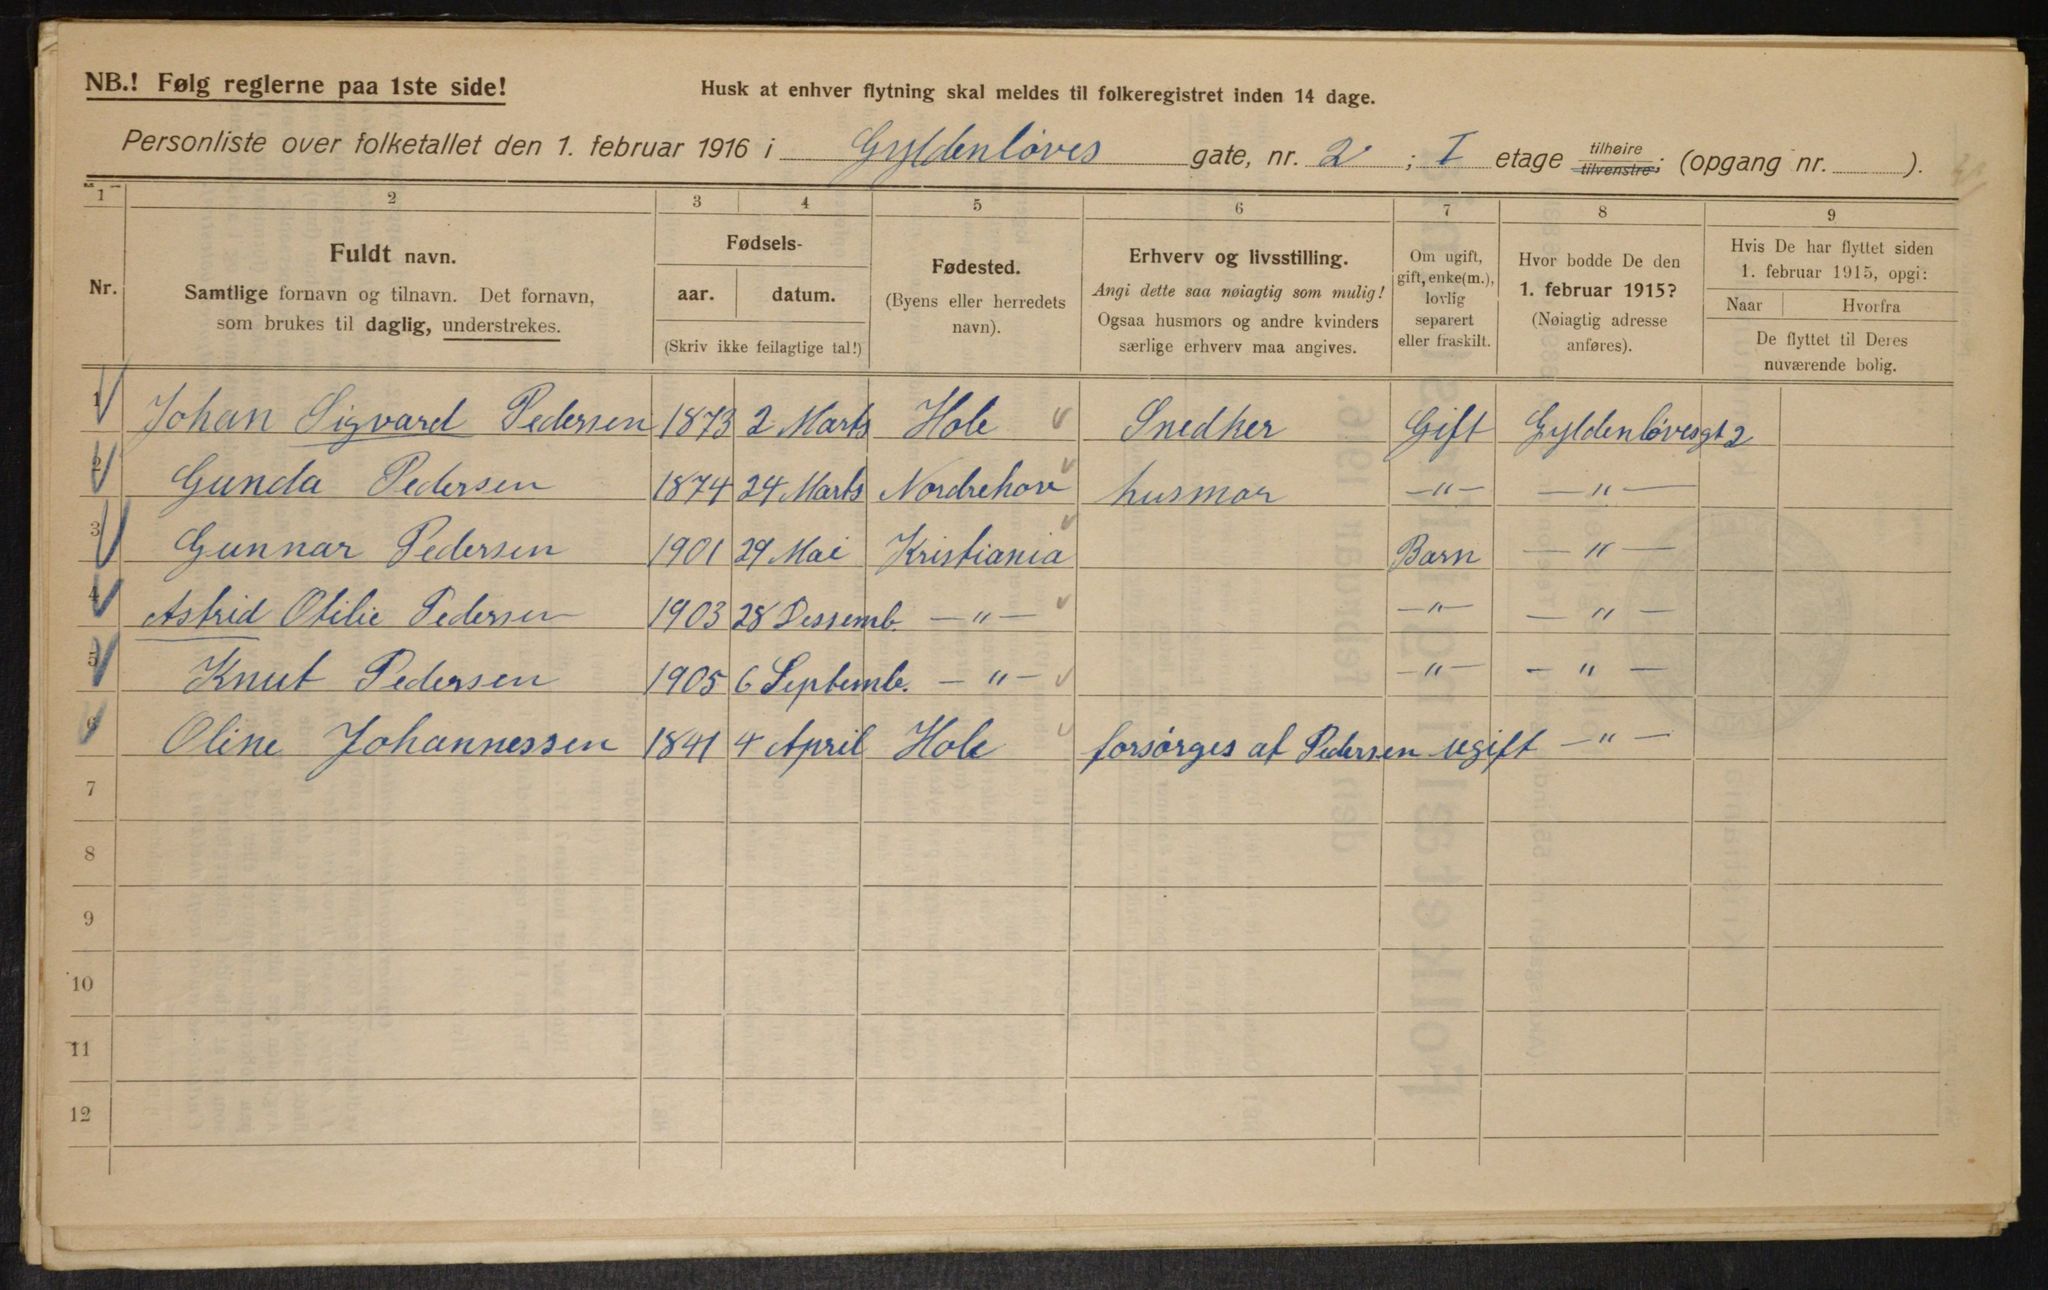 NB.! Følg reglerne paa 1ste side!
Husk at enhver flytning skal meldes til folkeregistret inden 14 dage.
Personliste over folketallet den 1. februar 1916 i Gyldenløves gate, nr. 2 ; I etage tilhøire tilvenstre; (opgang nr. ).
1 2 3 4 5 6 7 8 9
Nr.
Fuldt navn.
Samtlige fornavn og tilnavn. Det fornavn,
som brukes til daglig, understrekes.
Fødsels-
aar. datum.
(Skriv ikke feilagtige tal!)
Fødested.
(Byens eller herredets
navn).
Erhverv og livsstilling.
Angi dette saa nøiagtig som mulig!
Ogsaa husmors og andre kvinders
særlige erhverv maa angives.
Om ugift,
gift, enke(m.),
lovlig
separert
eller fraskilt.
Hvor bodde De den
1. februar 1915?
(Nøiagtig adresse
anføres).
Hvis De har flyttet siden
1. februar 1915, opgi:
Naar Hvorfra
De flyttet til Deres
nuværende bolig.
1 Johan Sigvard Pedersen 1873 2 Marts Hole Snedker Gift Gyldenløvesgt 2
2 Gunda Pedersen 1874 24 Marts Nordrehov husmor —„— —„—
3 Gunnar Pedersen 1901 29 Mai Kristiania Barn —„—
4 Astrid Otilie Pedersen 1903 28 Dessemb. —„— —„— —„—
5 Knut Pedersen 1905 6 Septemb. —„— —„— —„—
6 Oline Johannessen 1841 4 April Hole forsørges af Pedersen ugift —„—
7
8
9
10
11
12